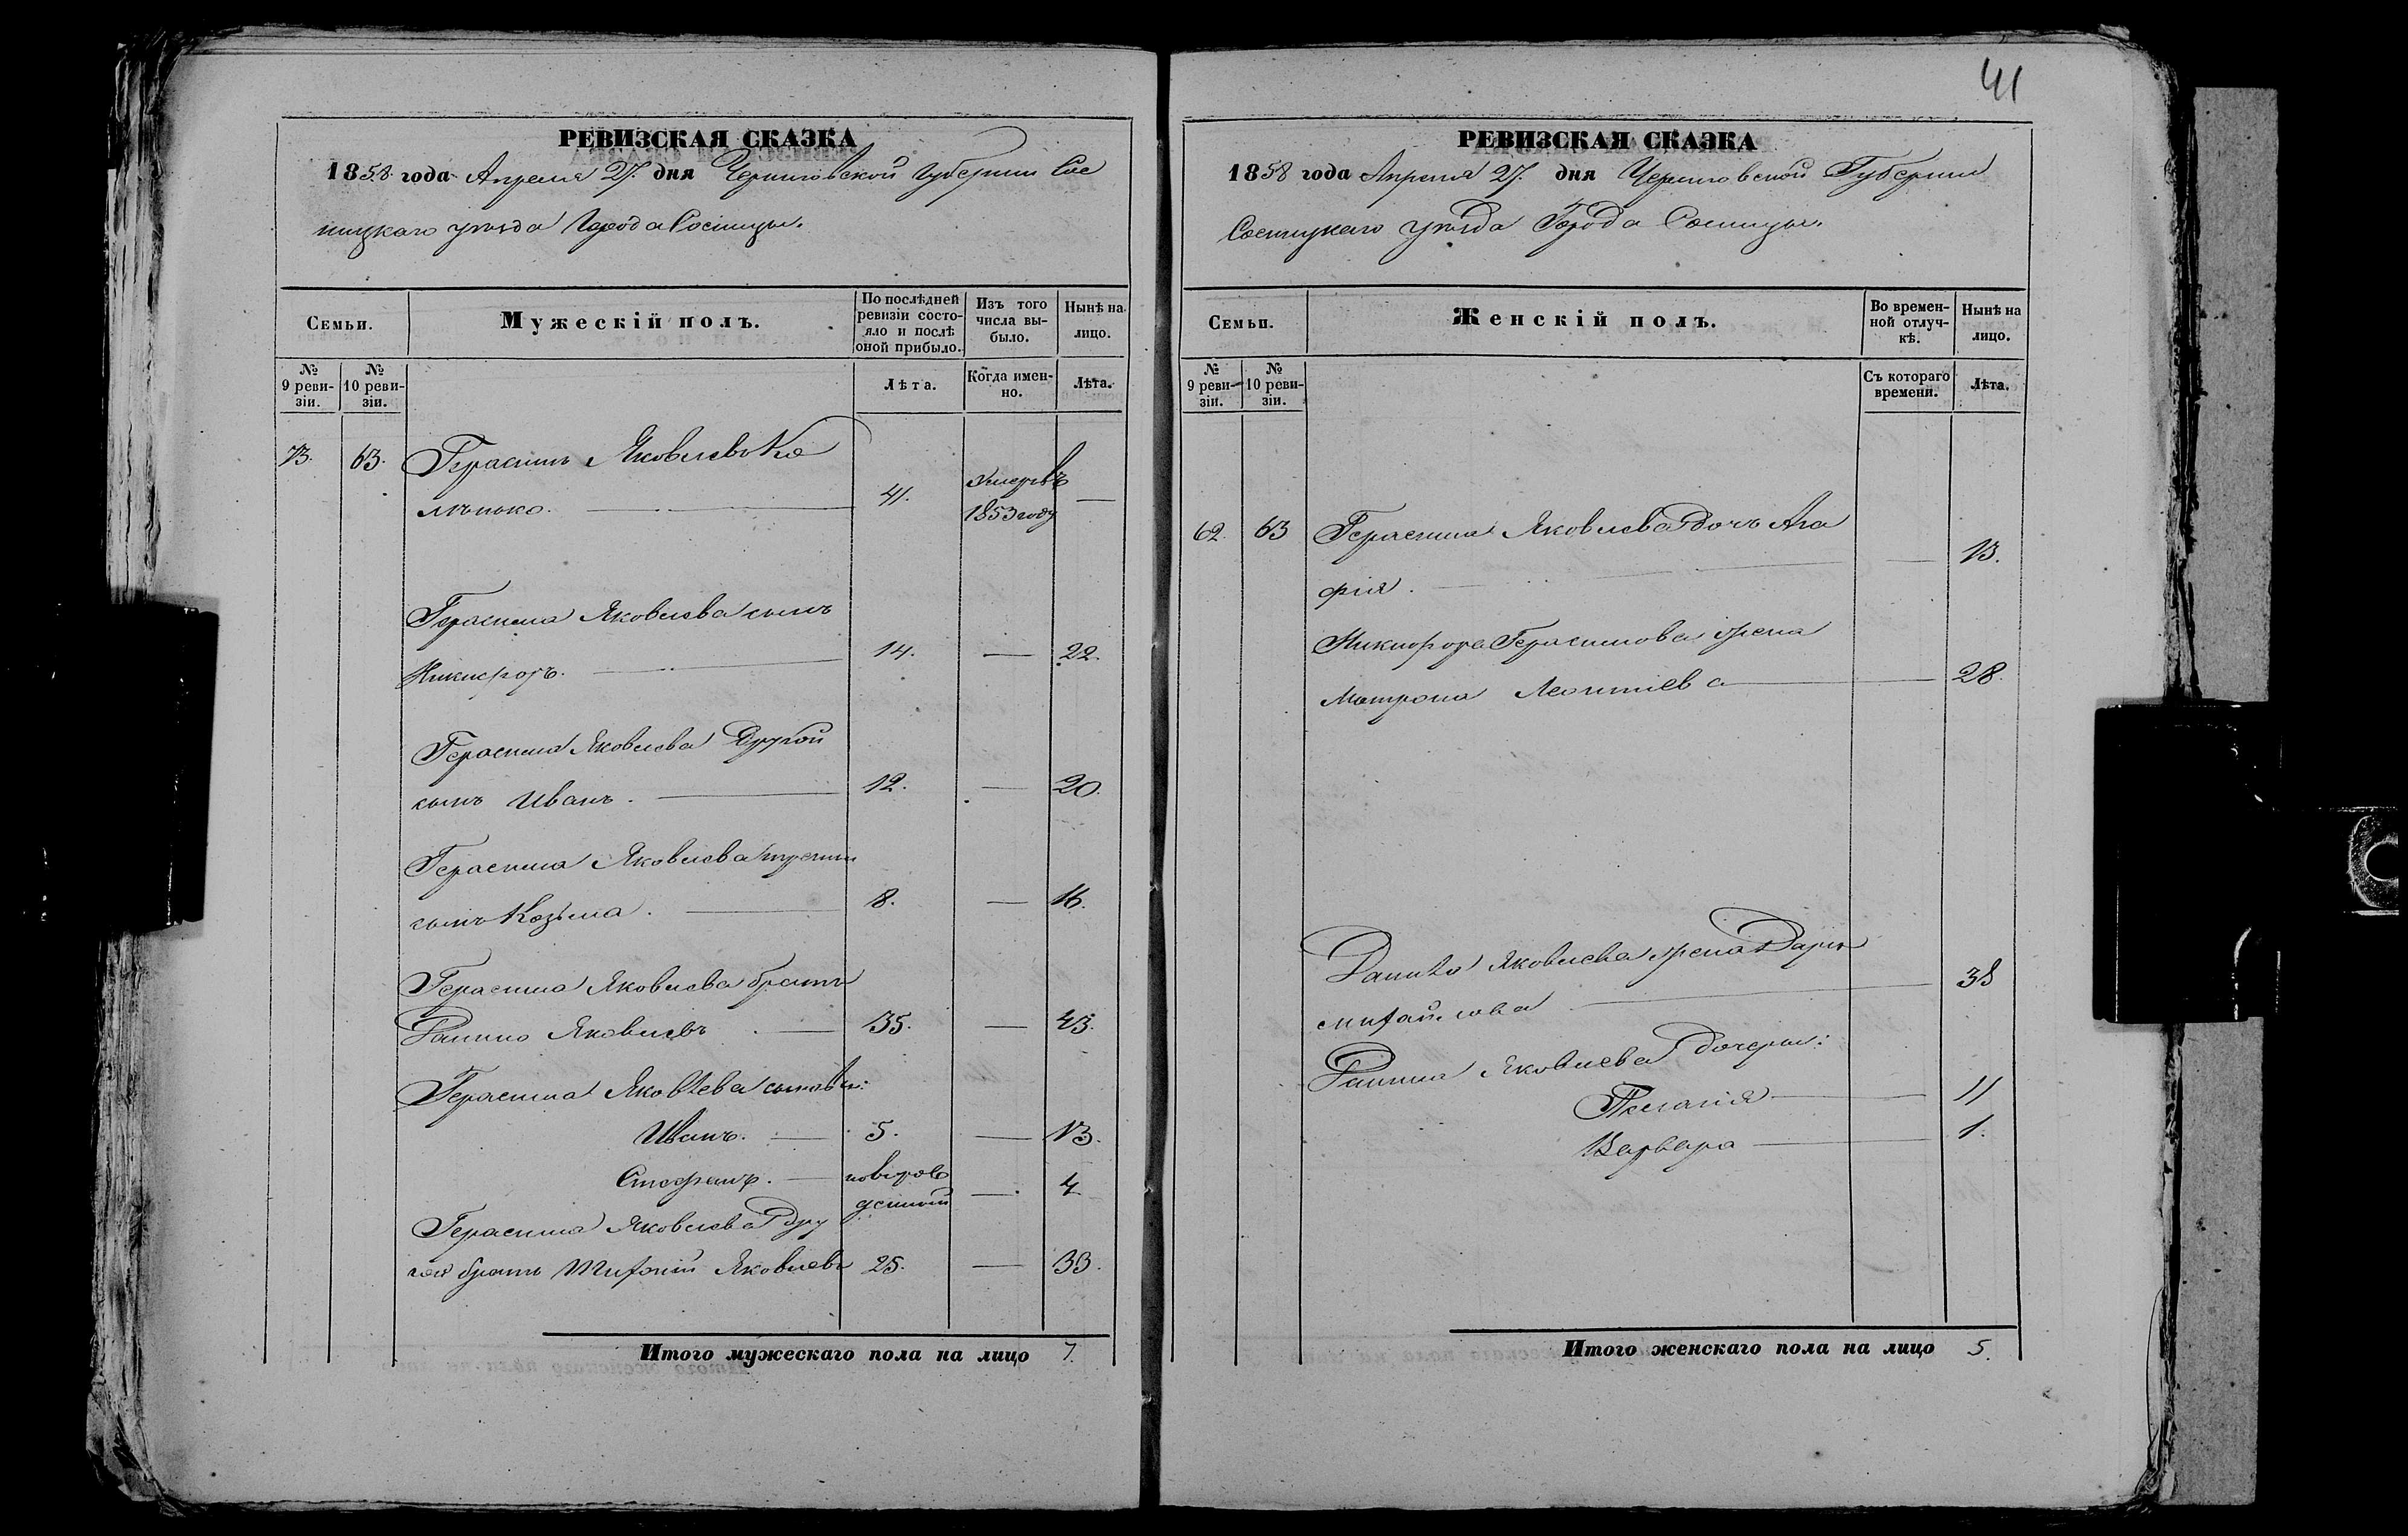 41
РЕВИЗСКАЯ СКАЗКА
1858 года Апреля 27. дня Черниговской Губернии Сос
ницкаго уѣзда Города Сосницы.
Семьи.
Мужескій полъ.
По послѣдней ревизіи состояло и послѣ оной прибыло.
Изъ того числа выбыло.
Нынѣ на лицо.
№ 9 ревизіи.
№ 10 ревизіи.
Лѣта.
Когда именно.
Лѣта.
73. 63. Герасимъ Яковлевъ Ко
лѣнько. 41. Умеръ въ 1853 году —
Герасима Яковлева сынъ
Никифоръ. 14. — 22.
Герасима Яковлева Другой
сынъ Иванъ. 12. — 20.
Герасима Яковлева третій
сынъ Козьма. 8. — 16.
Герасима Яковлева братъ
Данило Яковлевъ. 35. — 43.
Герасима Яковлева сыновья:
Иванъ. — 5. — 13.
Стефанъ. — новорож
денный — 4
Герасима Яковлева дру
гой братъ Тифоній Яковлевъ 25. — 33.
Итого мужескаго пола на лицо 7.
РЕВИЗСКАЯ СКАЗКА
1858 года Апреля 27. дня Черниговской Губернии
Сосницкаго уѣзда Города Сосницы.
Семьи.
Женскій полъ.
Во временной отлучкѣ.
Нынѣ на лицо.
№ 9 ревизіи.
№ 10 ревизіи.
Съ котораго времени.
Лѣта.
62. 63 Герасима Яковлева дочь Ага
фія. — 13.
Никифора Герасимова жена
Матрона Леонтіева — 28.
Данила Яковлева жена Дарья
Михайлова — 38
Данила Яковлева дочери:
Пелагія — 11
Варвара — 1.
Итого женскаго пола на лицо 5.